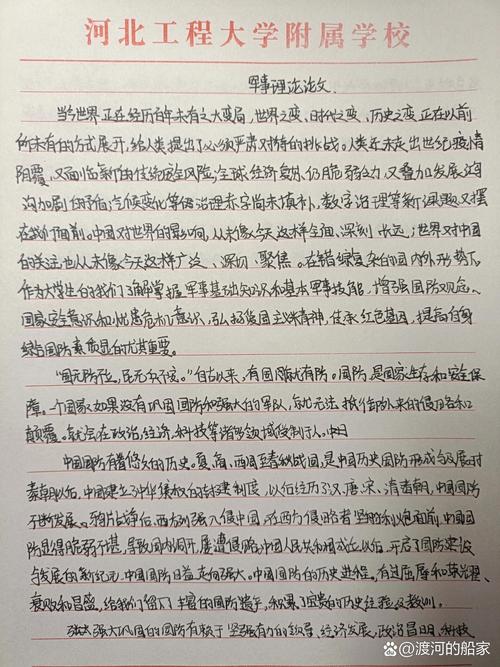 河北工程大学附属学校
军事理论论文
当今世界正在经历百年未有之大变局,世界之变、时代之变、历史之变正在以前
所未有的方式展开,给人类提出了必须严肃对待的挑战。人类还未走出世纪疫情
阴霾,又面临新的传统安全风险;全球经济复苏仍脆弱乏力,又叠加发展鸿
沟加剧的矛盾;气候变化等治理赤字尚未填补,数字治理等新课题又摆
在我们面前。中国对世界的影响,从未像今天这样全面、深刻、长远;世界对中国
的关注也从未像今天这样广泛、深切、聚焦。在错综复杂的国内外形势下,
作为大学生的我们了解掌握军事基础知识和基本军事技能,增强国防观念、
国家安全意识和忧患危机意识,弘扬爱国主义精神,传承红色基因,提高自身
综合国防素质显的尤其重要。
“国无防不立,民无兵不安。”自古以来,有国就有防。国防是国家生存和安全保
障。一个国家如果没有巩固国防和强大的军队,就无法抵御外来的侵略和
颠覆。就会在政治、经济、科技等诸多领域受制于人。
中国国防有着悠久的历史。夏、商、西周至春秋战国,是中国历史国防形成与发展时
秦朝以后,中国建立了中华集权的封建制度,以后经历了汉、唐、宋、清朝,中国国防
不断发展。鸦片战争后,西方列强入侵中国,在西方侵略者坚船利炮面前,中国国
防显得脆弱不堪,导致国内洞开,屡遭侵略。中国人民共和国成立以后,开启了国防建设
与发展的新纪元,中国国防日益走向强大。中国国防的历史进程,有过屈辱和荣耀,
衰败和昌盛,给我们留下丰富的国防遗产,积累了宝贵的历史经验及教训。
强大巩固的国防有赖于坚强有力的领导、经济发展、政治昌明、科技
@渡河的船家